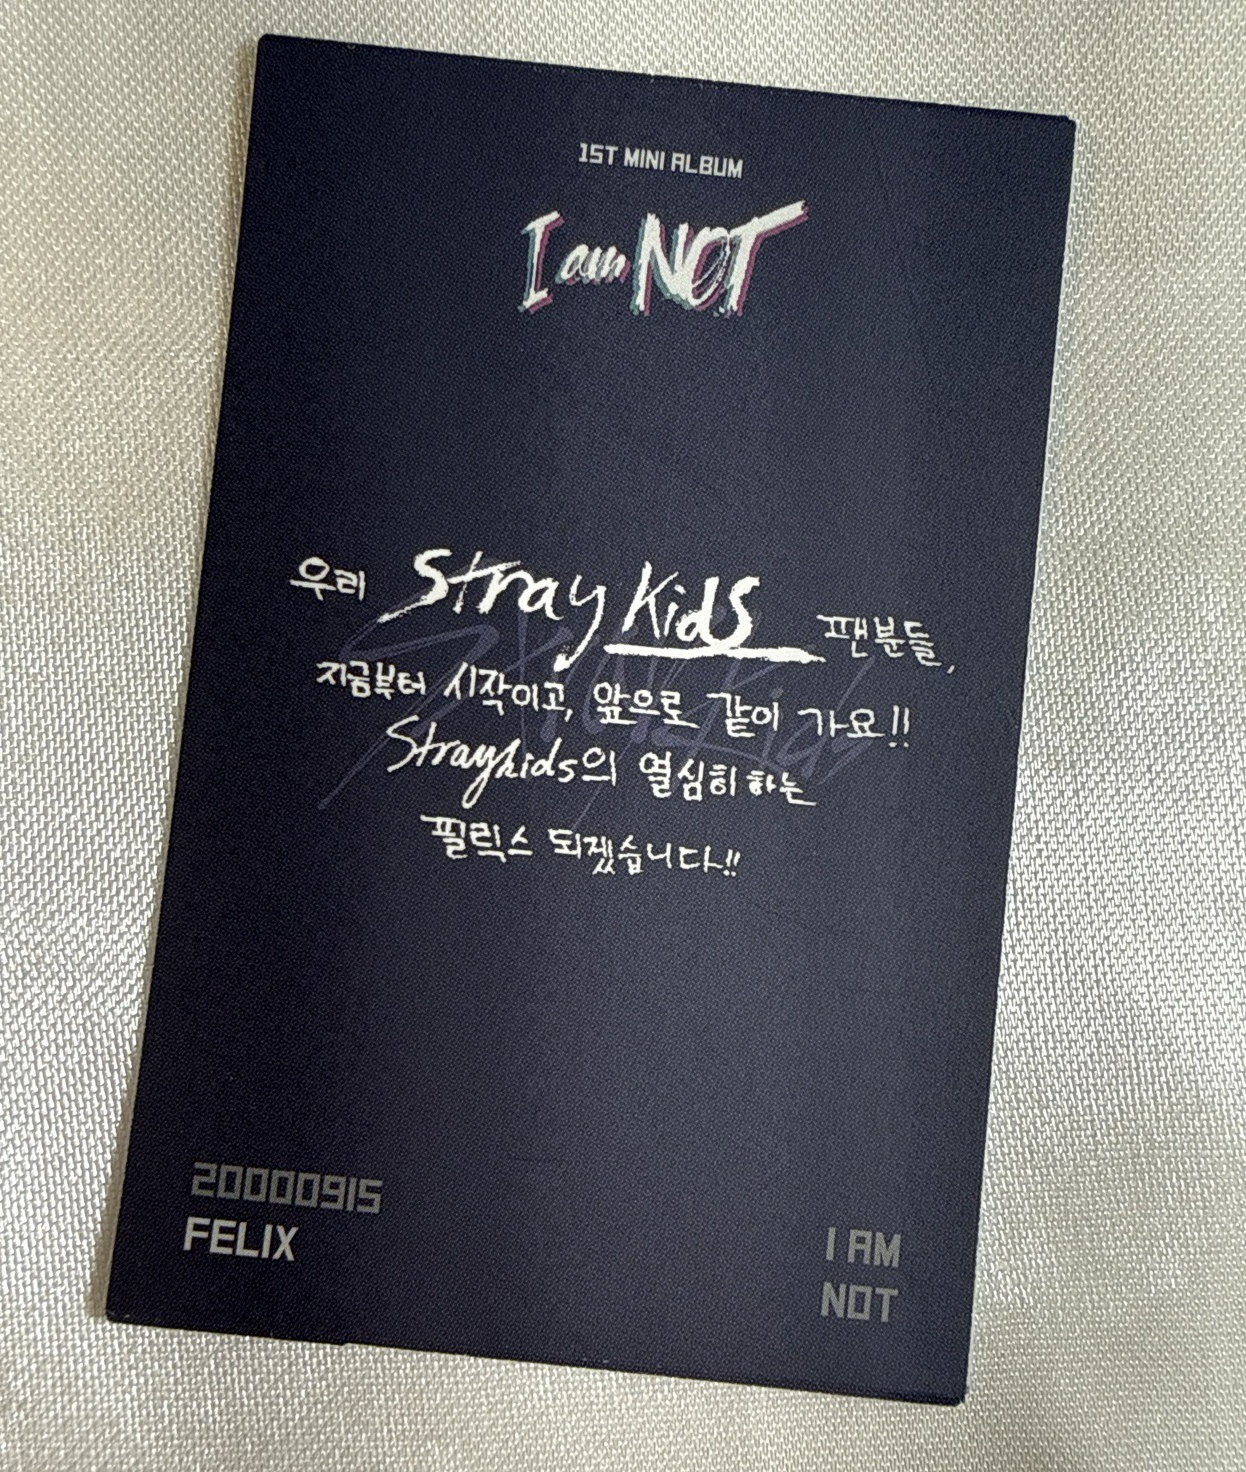 1ST MINI ALBUM
I am NOT
우리 Stray Kids 팬분들,
지금부터 시작이고, 앞으로 같이 가요!!
Straykids의 열심히 하는
필릭스 되겠습니다!!
20000915
FELIX
I AM
NOT